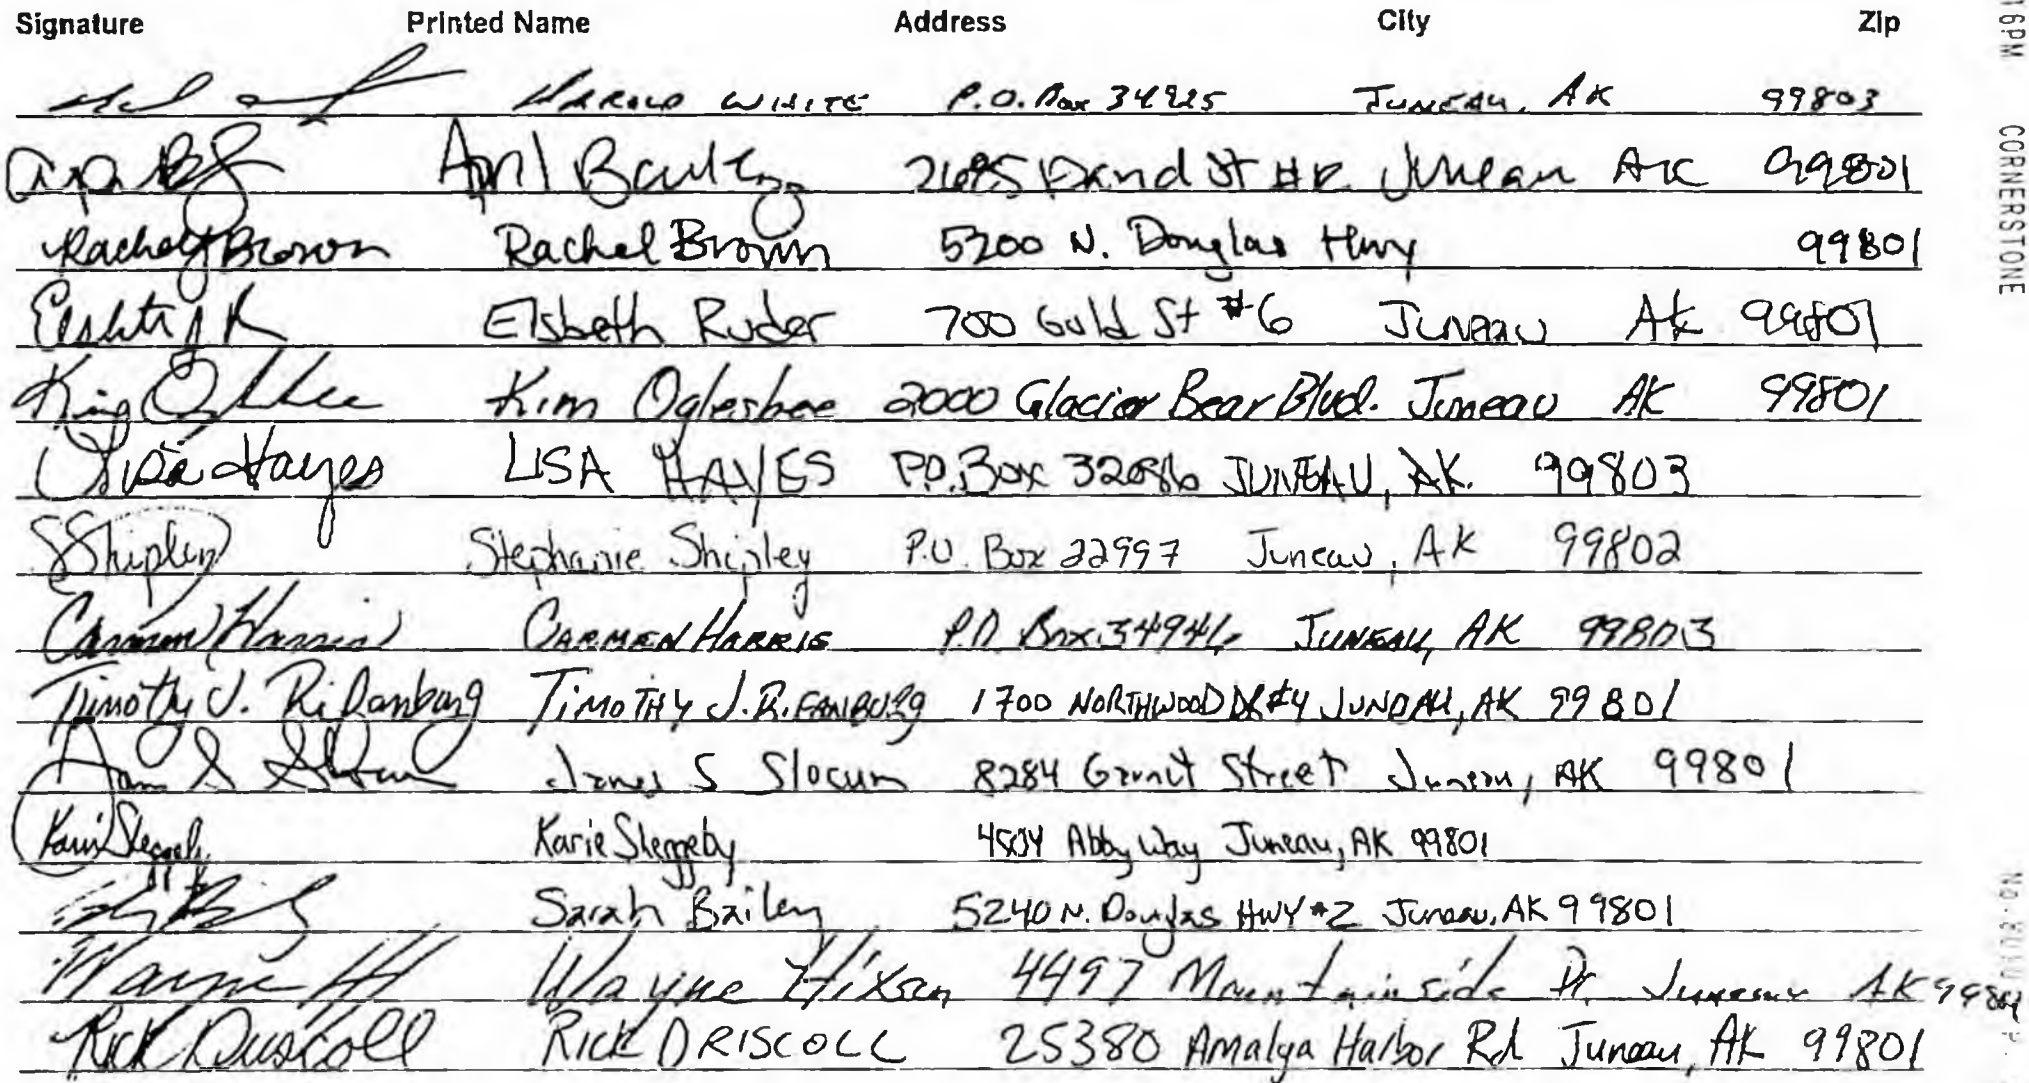 Signature Printed Name Address City Zip
HAROLD WHITE P.O. Box 34925 JUNEAU, AK 99803
April Bailey 2695 David St Juneau AK 99801
Rachel Brown Rachel Brown 5200 N. Douglas Hwy 99801
Elsbeth Ruder 700 Gold St #6 Juneau AK 99801
Kim Oglesbee 2000 Glacier Bear Blvd. Juneau AK 99801
Lisa Hayes LISA HAYES P.O. Box JUNEAU, AK. 99803
SShipley Stephanie Shipley P.O. Box 22997 Juneau, AK 99802
Carmen Harris CARMEN HARRIS P.O. Box 34946 JUNEAU, AK 99803
Timothy J. TIMOTHY J. 1700 NORTHWOOD DR #4 JUNEAU, AK 99801
James S Slocum 8284 Garnet Street Juneau, AK 99801
Karie Abby Way Juneau, AK 99801
Sarah Bailey 5240 N. Douglas HWY #2 Juneau, AK 99801
Wayne Hixson 4497 Mountainside Dr. Juneau AK 99801
Rick Driscoll RICK DRISCOLL 25380 Amalga Harbor Rd Juneau, AK 99801
16PM CORNERSTONE
No.